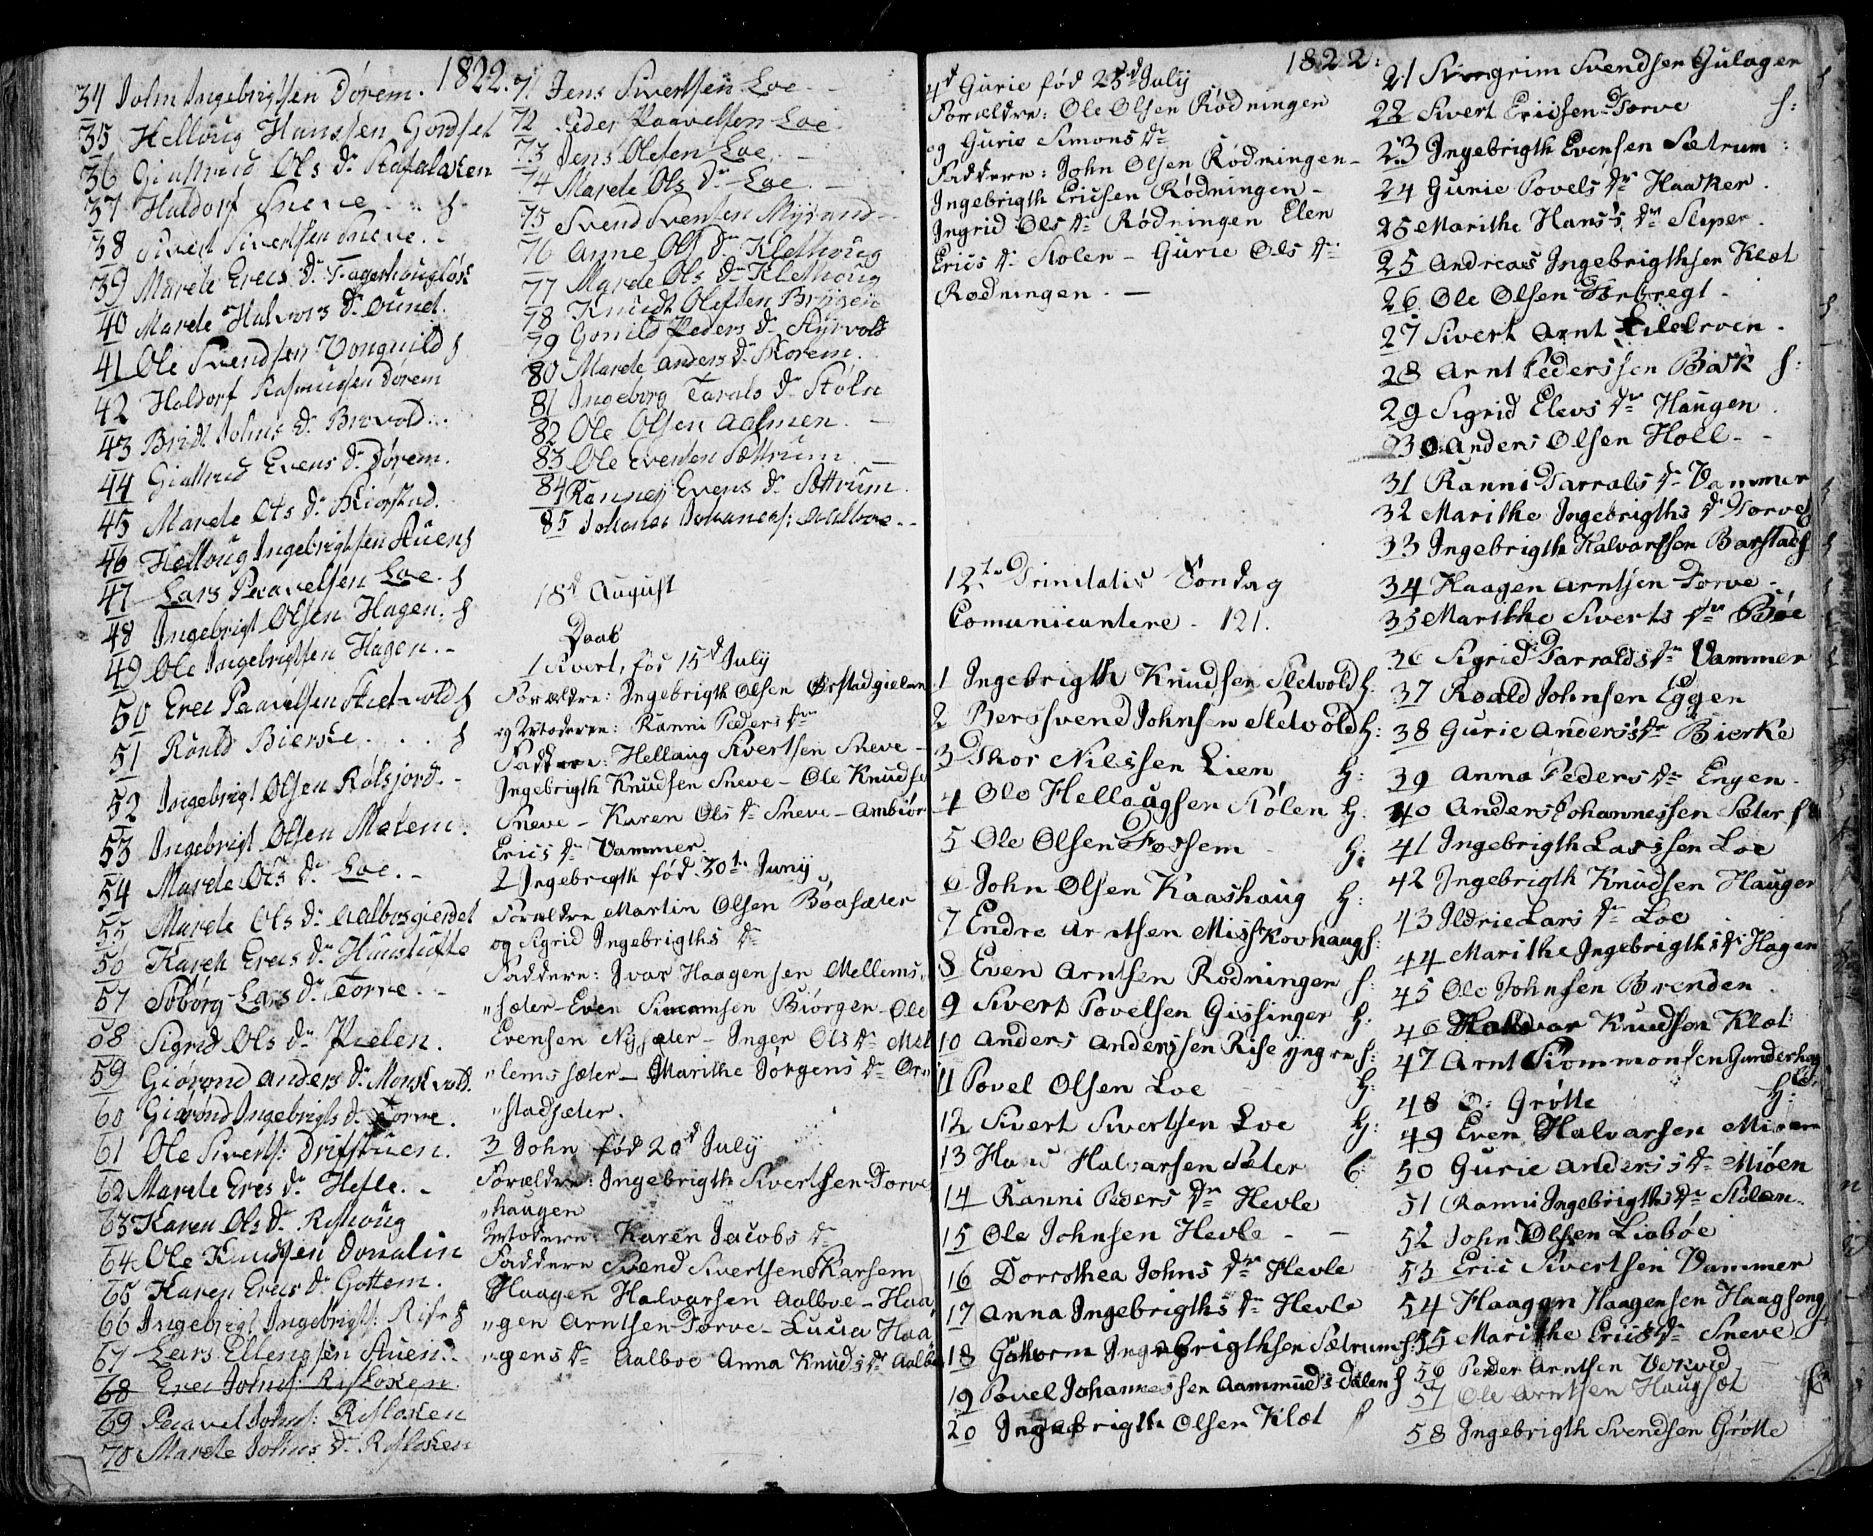 1822.
34 John Ingebrigtsen Dørem.
35 Helloug Hanssen Gordset
36 Giøttrud Ols Dr Stafalaken
37 Haldorf Sneve . . . h
38 Sivert Sivertsen Sneve. -
39 Marete Erecs Dr Fagerhougløk
40 Marete Halvors Dr Ound.
41 Ole Svendsen Vonguild h
42 Haldorf Rasmussen Dørem
43 Bridt Johns Dr Brovold . .
44 Giøttrud Evens Dr Dørem.
45 Marete Ols Dr Kierstad.
46 Helloug Ingebrigtsen Auen h
47 Lars Paavelsen Loe. h
48 Ingebrigt Olsen Hagen. h
49 Ole Ingebrigtsen Hagen. -
50 Erec Paavelsen Sletvold h
51 Roald Bierke . . . h
52 Ingebrigt Olsen Rølsjord. -
53 Ingebrigt Olsen Morem.
54 Marete Ols Dr Loe. -
55 Marete Ols Dr Aalbosgierdet
56 Karen Erecs Dr Huustufte
57 Søbørg Lars Dr Torve. -
58 Sigrid Ols Dr Pielen.
59 Giørond Anders Dr Morkvold.
60 Giørond Ingebrigts Dr Torve.
61 Ole Siverts: Drifstuen.
62 Marete Erecs Dr Hefle. -
63 Karen Ols Dr Risthoug
64 Ole Knudsen Donalin
65 Karen Erecs Dr Gottem.
66 Ingebrigt Ingebrigts: Rise h
67 Lars Ellengsen Auen. -
68 Erec Johns: Risloken.
69 Paavel Johns: Risloken
70 Marete Johns Dr Risloken
71 Jens Sivertsen Loe - -
72 Peder Paavelsen Loe.
73 Jens Olesen Loe. -
74 Marete Ols Dr Loe. -
75 Svend Svensen Myrand -
76 Anne Ols Dr Klethoug
77 Marete Ols Dr Klethoug
78 Knudt Olessen Bryggen
79 Gonild Peders Dr Styrvold
80 Marete Anders Dr Skorem.
81 Ingeborg Taralds Dr Støln
82 Ole Olsen Aalmen. -
83 Ole Evensen Settrum. -
84 Rannei Evens Dr Settrum.
85 Johanes Johanes: Aalboe. -
18d August
Daab
1 Sivert, fød 15d July
Forældre: Ingebrigth Olsen Ørstadgielen
og Moderen: Ranni Peders Dr
Faddere: Hellaug Sivertsen Sneve -
Ingebrigth Knudsen Sneve - Ole Knudse
Sneve - Karen Ols Dr Sneve - Ambiør
Erics Dr Vammer.
2 Ingebrigth fød 30te Juny
Forældre Martin Olsen Bøasæter
og Sigrid Ingebrigths Dr
Faddere: Ivar Haagensen Mellems,,
,,sæter - Even Simonsen Biørgen - Ole
Evensen Nysæter - Inger Ols Dr Mel
,,lemssæter - Marithe Jørgens Dr Or,,
,,stadsæter.
3 John fød 20d July
Forældre: Ingebrigth Sivertsen Torve
,,haugen
Moderen: Karen Jacobs Dr
Faddere Svend Sivertsen Skarsem
Haagen Halvarsen Aalboe - Haa
,,gen Arntsen Torve - Lucia Haa
,,gens Dr Aalboe Anna Knuds Dr Aalbo
1822.
4d Gurie fød 25d July
Forældre: Ole Olsen Rødningen
og Gurie Simons Dr
Faddere: John Olsen Rødningen -
Ingebrigth Ericsen Rødningen -
Ingrid Ols Dr Rødningen Elen
Erics Dr Stølen - Gurie Ols Dr
Rødningen. -
12te Trinitatis Søndag
Comunicantere - 121.
1 Ingebrigth Knudsen Sletvold h:
2 Berssvend Johnsen Sletvold h:
3 Thor Nilssen Lien h:
4 Ole Hellaugsen Stølen h:
5 Ole Olsen Fossem h:
6 John Olsen Kaashaug h:
7 Endre Arntsen Misskovhaug h:
8 Even Arntsen Rødningen h:
9 Sivert Povelsen Gissinger h:
10 Anders Anderssen Rise yngre h:
11 Povel Olsen Loe h:
12 Sivert Sivertsen Loe h:
13 Hans Halvarsen Sæter 6:
14 Ranni Peders Dr Hevle
15 Ole Johnsen Hevle - -
16 Dorothea Johns Dr Hevle
17 Anna Ingebrigths Dr Hevle
18 Guttorm Ingebrigthsen Sætrum h:
19 Povel Johannessen Aammudsdalen h
20 Ingebrigth Olsen Klot h
21 Sivergrim Svendsen Gulager
22 Sivert Ericsen Torve h:
23 Ingebrigth Evensen Sætrum :
24 Gurie Povels Dr Haaker.
25 Marithe Hans's Dr Sleper.
25 Andreas Ingebrigthsen Klot
26 Ole Olsen Torbregt.
27 Sivert Arnt Lilelrøen.
28 Arnt Pederssen Bask h:
29 Sigrid Elevs Dr Haugen.
30 Anders Olsen Holl - -
31 Ranni Tarralds Dr Vammer
32 Marithe Ingebrigths Dr Torve h
33 Ingebrigth Halvarssen Barstad h
34 Haagen Arntsen Torve -
35 Marithe Siverts Dr Bøe
36 Sigrid Tarralds Dr Vammer
37 Roald Johnsen Eggen
38 Gurie Anders's Dr Bierke
39 Anna Peders Dr Engen -
40 Anders Johannessen Sæter h
41 Ingebrigth Larssen Loe
42 Ingebrigth Knudsen Haugen
43 Ildrie Lars Dr Loe
44 Marithe Ingebrigths Dr Hagen
45 Ole Johnsen Brenden.
46 Haldvar Knudsen Klot
47 Arnt Kommonsen Gunderhaug
48 O: Grøtte h:
49 Even Halvarsen Mioen
50 Gurie Anders's Dr Miøen
51 Ranni Ingebrigths Dr Stølen.
52 John Olsen Liabøe
53 Eric Sivertsen Vammer
54 Haagen Haagensen Haagsong
55 Marithe Erics Dr Sneve h
56 Peder Arntsen Vorvid
57 Ole Arntsen Haugset
58 Ingebrigth Svendsen Grøtte